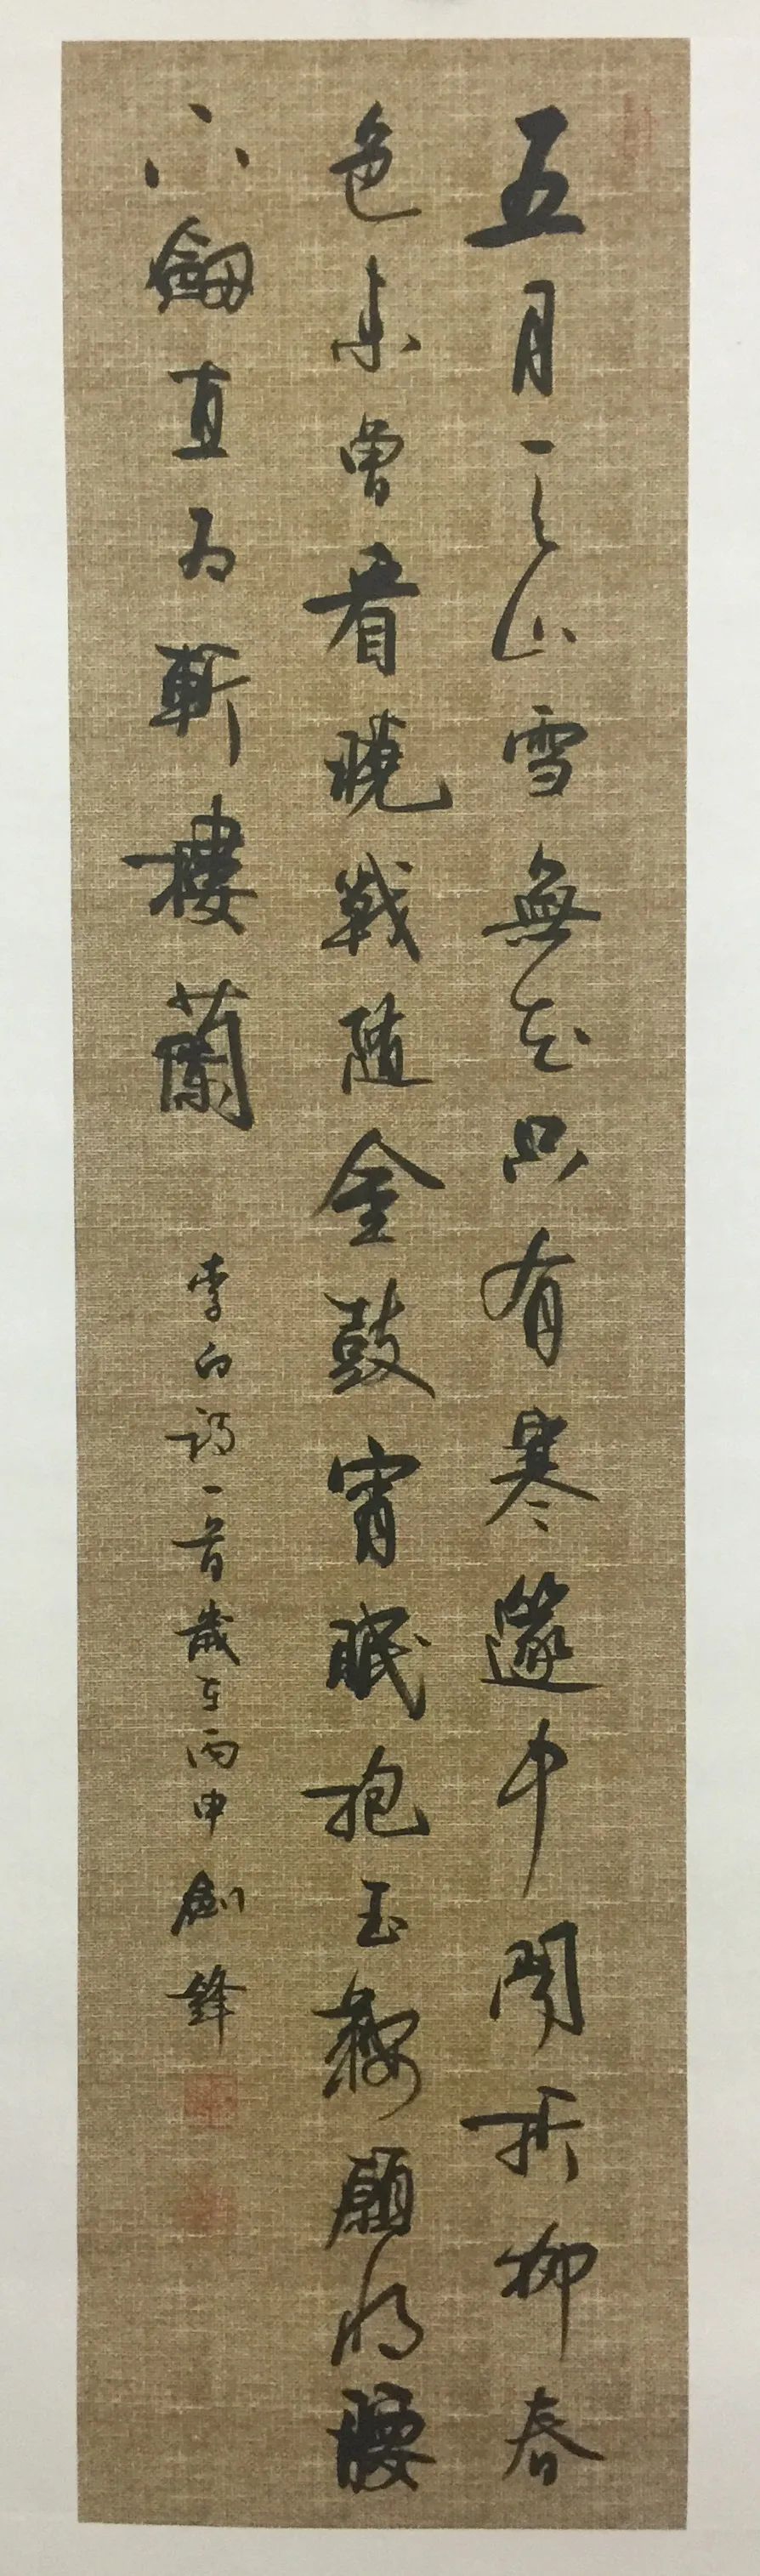 五月天山雪無花只有寒篴中聞折柳春
色未曾看曉戰随金鼓宵眠抱玉鞍願將腰
下劒直為斬樓蘭 李白詩一首歲在丙申劍鋒